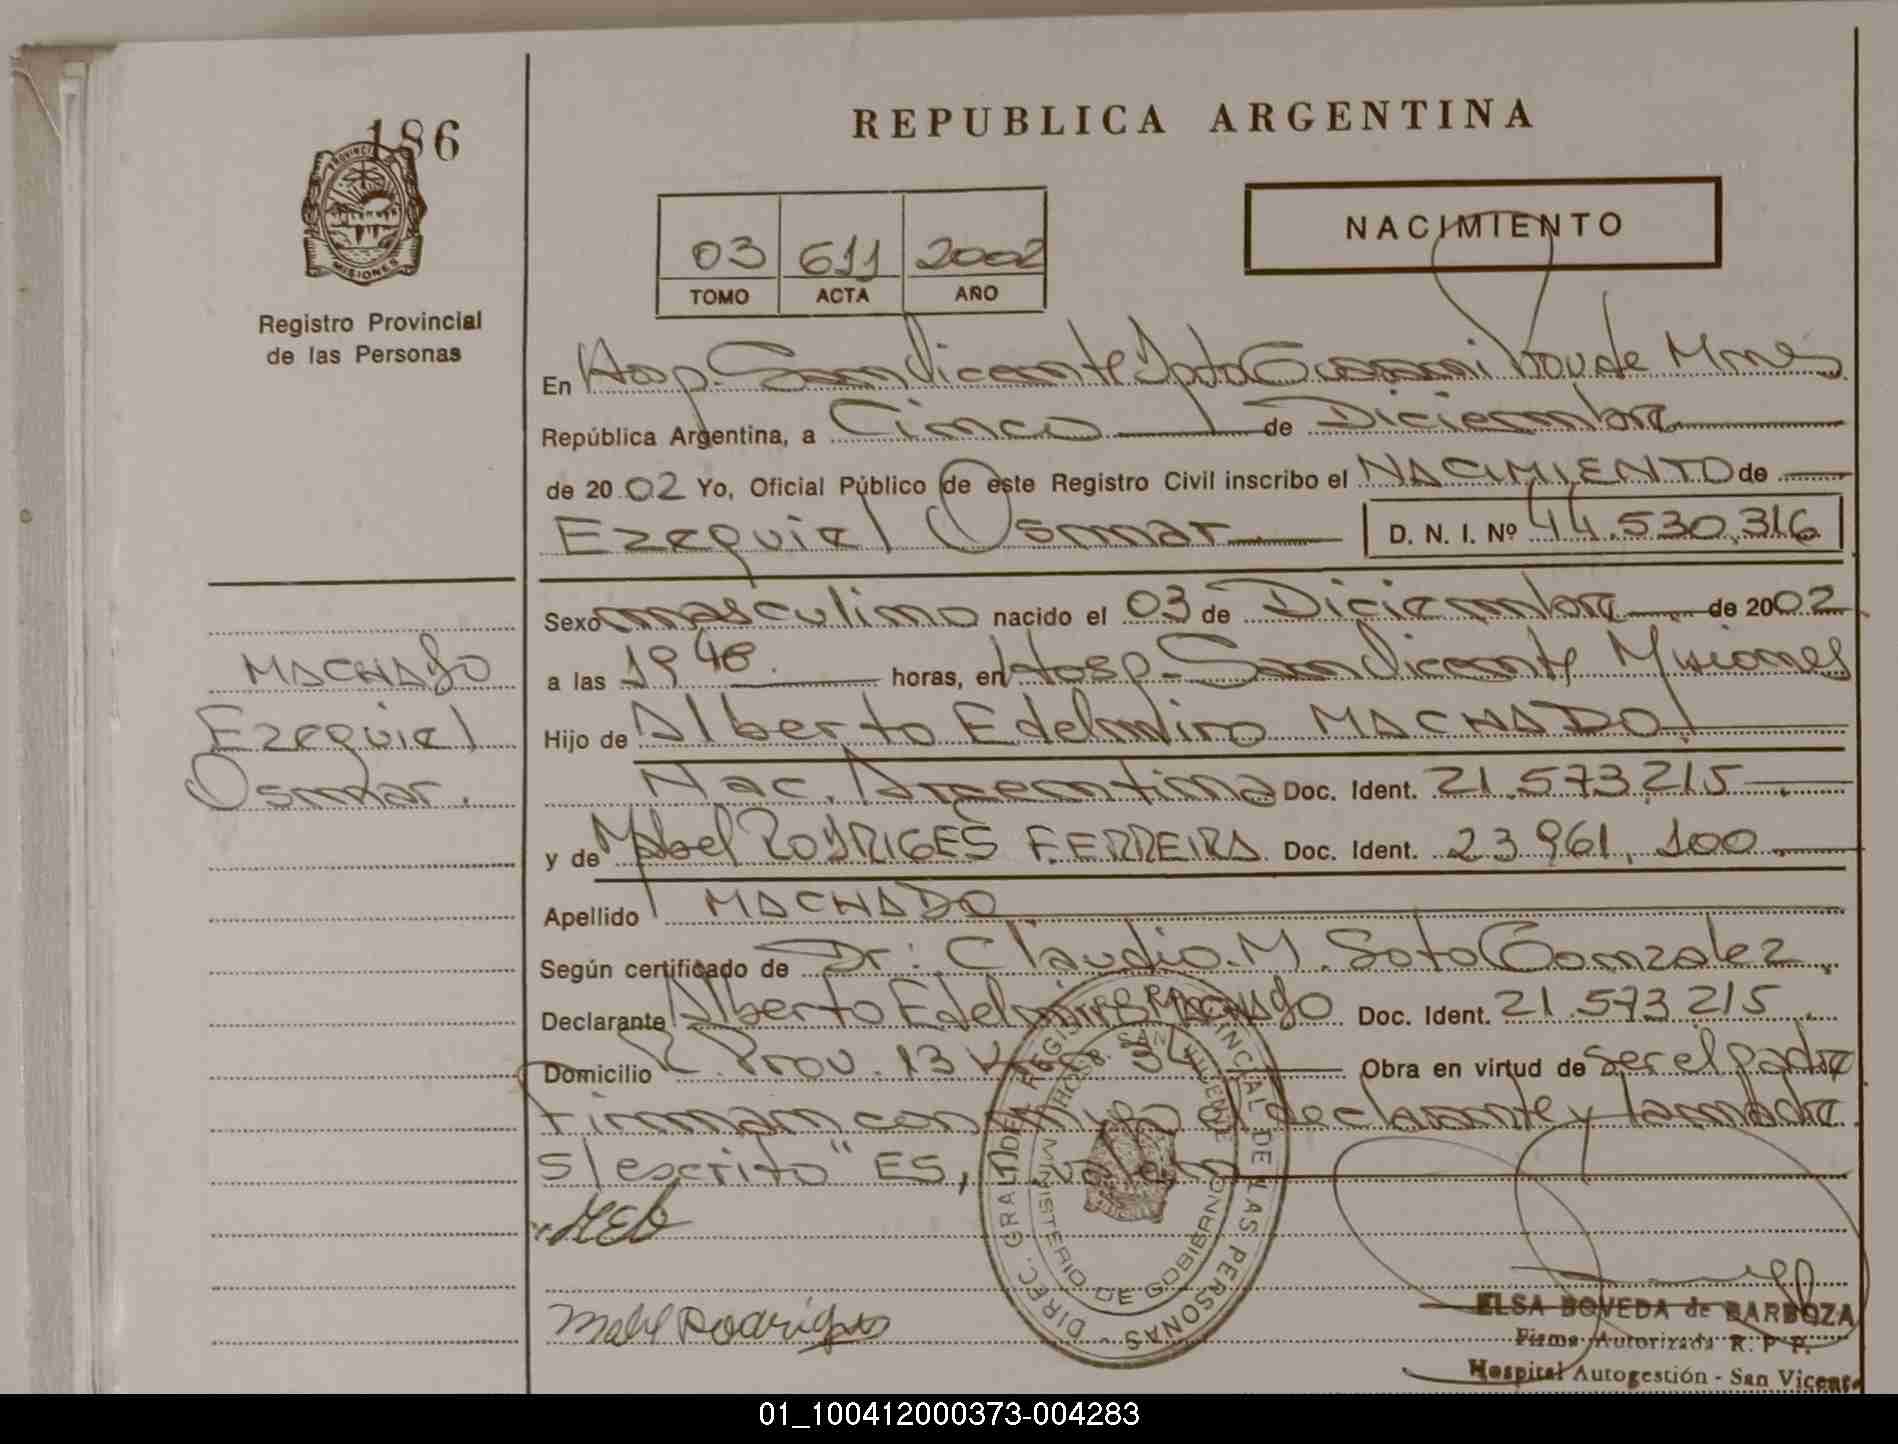 186
REPUBLICA ARGENTINA
PROVINCIA
MISIONES
Registro Provincial
de las Personas
03 611 2002
TOMO ACTA AÑO
NACIMIENTO
En Hosp. San Vicente Dpto Guarani Prov de Mnes
República Argentina, a Cinco de Diciembre
de 2002 Yo, Oficial Público de este Registro Civil inscribo el NACIMIENTO de
Ezequiel Osmar D. N. I. Nº 44.530.316
Sexo masculino nacido el 03 de Diciembre de 2002
MACHADO
Ezequiel
Osmar.
a las 19 48 horas, en Hosp. San Vicente Misiones
Hijo de Alberto Edelmiro MACHADO
Nac. Argentina Doc. Ident. 21.573.215
y de Mabel RODRIGES FERREIRA Doc. Ident. 23 961.100
Apellido MACHADO
Según certificado de Dr: Claudio. M. Soto Gonzalez
Declarante Alberto Edelmiro MACHADO Doc. Ident. 21.573 215
Domicilio R. Prov. 13 Km 34 Obra en virtud de ser el padre
Firman conmigo el declarante y la madre
s/escrito "ES, valen
DIREC. GRAL. DEL REGISTRO PROVINCIAL DE LAS PERSONAS
HOSP. SAN VICENTE
MINISTERIO DE GOBIERNO
Mabel Rodriges
ELSA BOVEDA de BARBOZA
Firma Autorizada R. P. P.
Hospital Autogestión - San Vicente
01_100412000373-004283